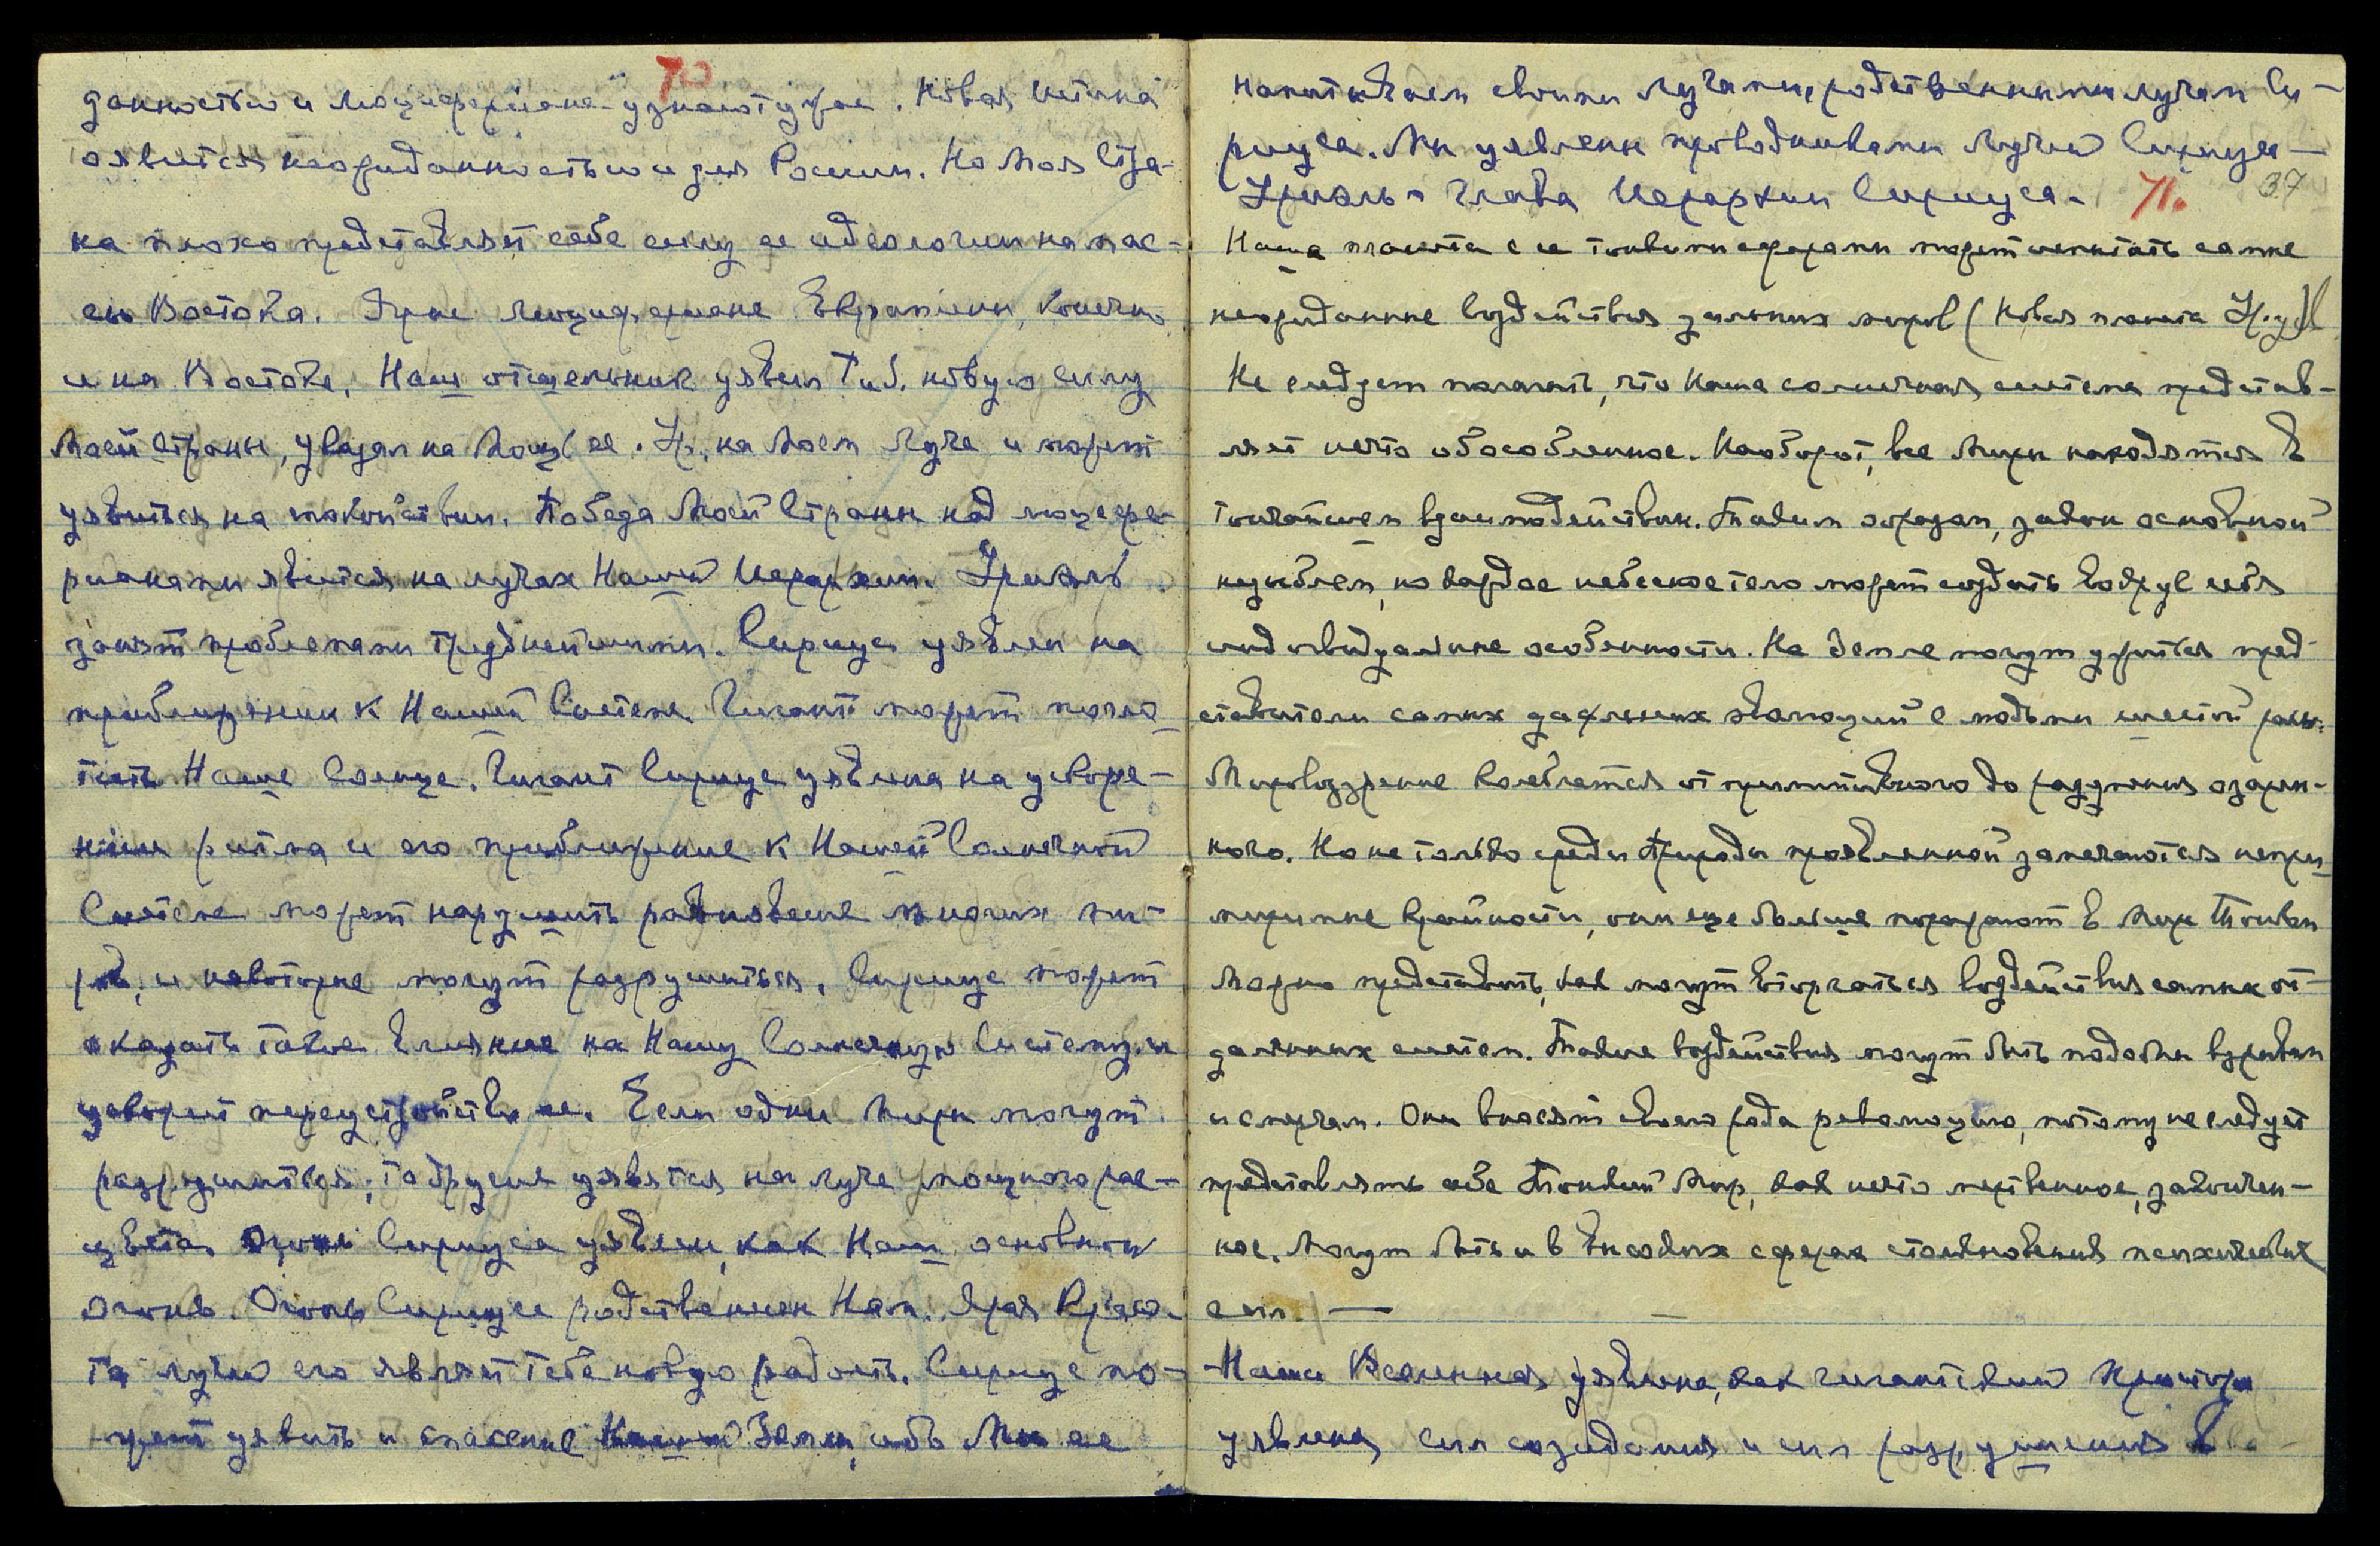 70
данностью и люциферияне узнают ужас. Новая истина
явится неожиданностью и для России. Но Моя Стра-
на плохо представляет себе силу ее идеологии на мас-
сы Востока. Ярые люцифериане Европеины, конечно
и на Востоке. Наш отшельник уявил Тиб. новую силу
Моей Страны, указал на Мощь ее. Ур. на Моем Луче и может
уявиться на спокойствии. Победа Моей Страны над люцифе-
рианами явится на лучах Нашей Иерархии. Уриэль
занят проблемами труднейшими. Сириус уявлен на
приближении к Нашей Системе. Гигант может погло
тить Наше Солнце. Гигант Сириус уявлен на ускоре-
нии ритма и его приближение к Нашей Солнечной
Системе может нарушить равновесие многих ми-
ров, и некоторые могут разрушиться. Сириус может
оказать такое влияние на Нашу Солнечную Систему и
ускорит переустройство ее. Если одни Миры могут
разрушиться, то другие уявятся на луче мощного рас-
цвета. Огонь Сириуса уявлен, как Наш основной
огонь. Огонь Сириуса родственен Нам. Ярая Красо-
та лучей его являет тебе новую радость. Сириус мо-
жет уявить и спасение Нашей Земли, ибо Мы ее
напитываем своими лучами, родственными лучам Си-
риуса. Мы уявлены проводниками Лучей Сириуса—
Уриэль - Глава Иерархии Сириуса. 71. 37
Наша планета с ее тонкими сферами может испытать самые
неожиданные воздействия дальних миров (Новая планета Ур.)
Не следует полагать, что Наша солнечная система представ-
ляет нечто обособленное. Наоборот, все Миры находятся в
тончайшем взаимодействии. Таким образом, закон основной
незыблем, но каждое небесное тело может создать вокруг себя
индивидуальные особенности. На Земле могут ужиться пред-
ставители самых далеких эволюций с людьми шестой расы.
Мировоззрение колеблется от примитивного до разумения озарен-
ного. Но не только среди Природы проявленной замечаются непри
миримые крайности, они еще больше поражают в Мире Тонком
Можно представить, как могут вторгаться воздействия самых от-
даленных систем. Такие воздействия могут быть подобны взрывам
и смерчам. Они вносят своего рода революцию, потому не следует
представлять себе Тонкий Мир, как нечто мертвенное, закончен-
ное. Могут быть и в высоких сферах столкновения психических
сил. —
Наша Вселенная уявлена, как гигантский Простор
уявления сил созидания и сил разрушения в